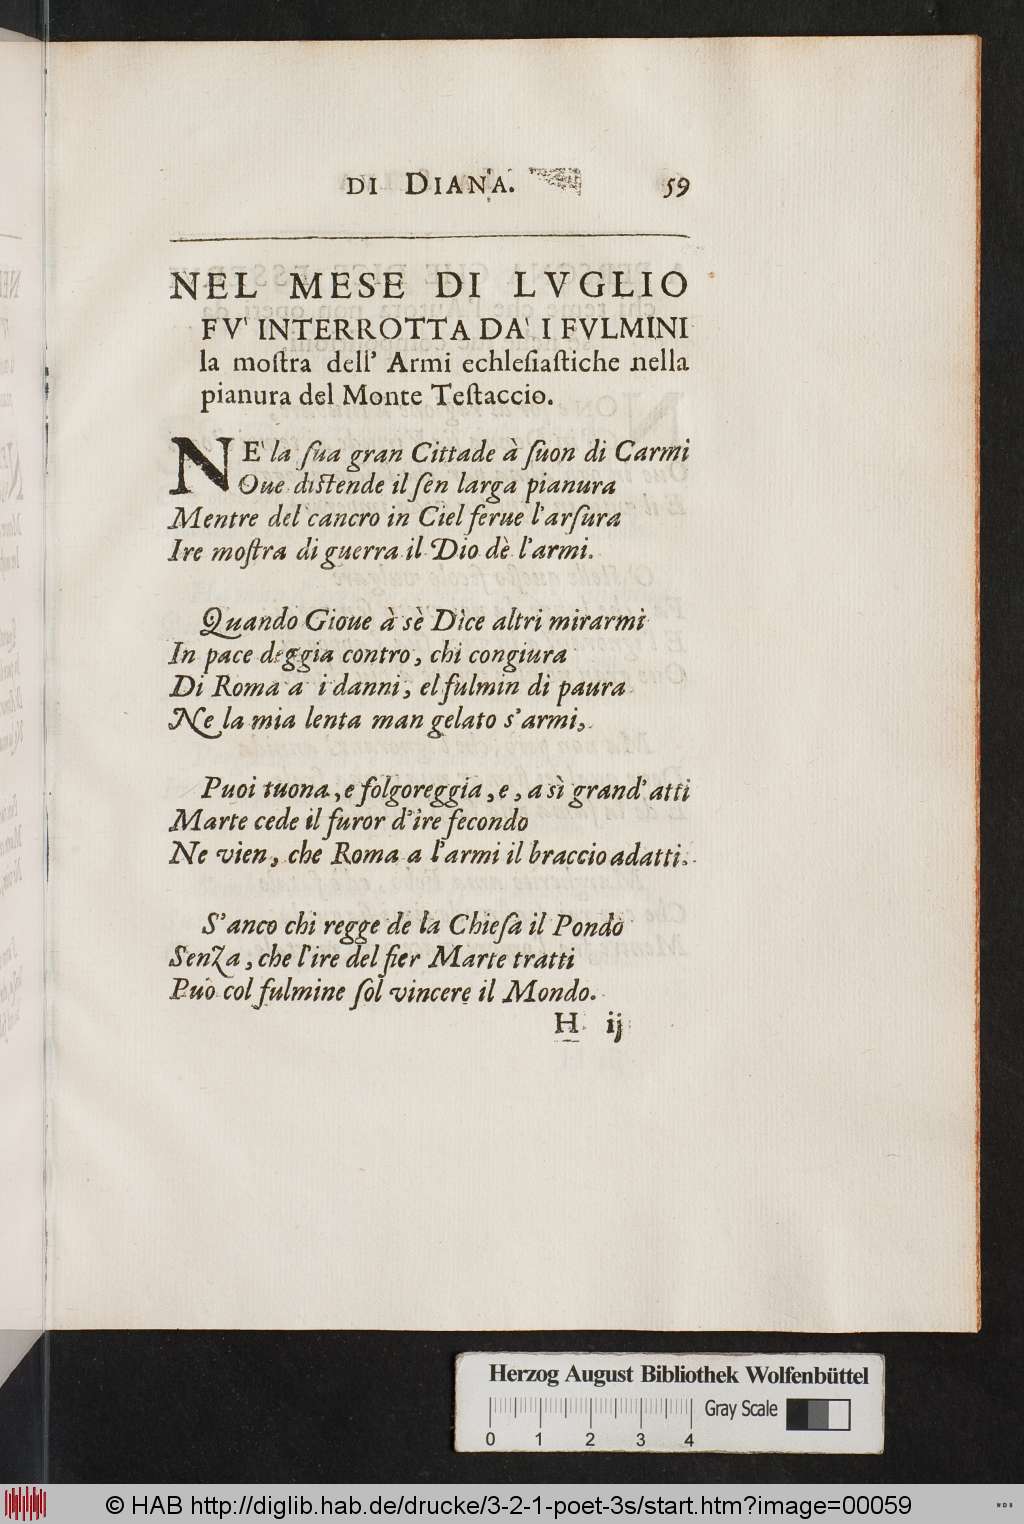 DI DIANA. 59
NEL MESE DI LVGLIO
FV' INTERROTTA DA' I FVLMINI
la moſtra dell' Armi echleſiaſtiche nella
pianura del Monte Teſtaccio.
NE' la ſua gran Cittade à ſuon di Carmi
Oue diſtende il ſen larga pianura
Mentre del cancro in Ciel ferue l'arſura
Ire moſtra di guerra il Dio dè l'armi.
Quando Gioue à sè Dice altri mirarmi
In pace deggia contro, chi congiura
Di Roma a i danni, el fulmin di paura
Ne la mia lenta man gelato s'armi,
Puoi tuona, e folgoreggia, e, a sì grand' atti
Marte cede il furor d'ire fecondo
Ne vien, che Roma a l'armi il braccio adatti.
S'anco chi regge de la Chieſa il Pondo
Senza, che l'ire del fier Marte tratti
Puo col fulmine ſol vincere il Mondo.
H ij
Herzog August Bibliothek Wolfenbüttel
Gray Scale
0 1 2 3 4
© HAB http://diglib.hab.de/drucke/3-2-1-poet-3s/start.htm?image=00059